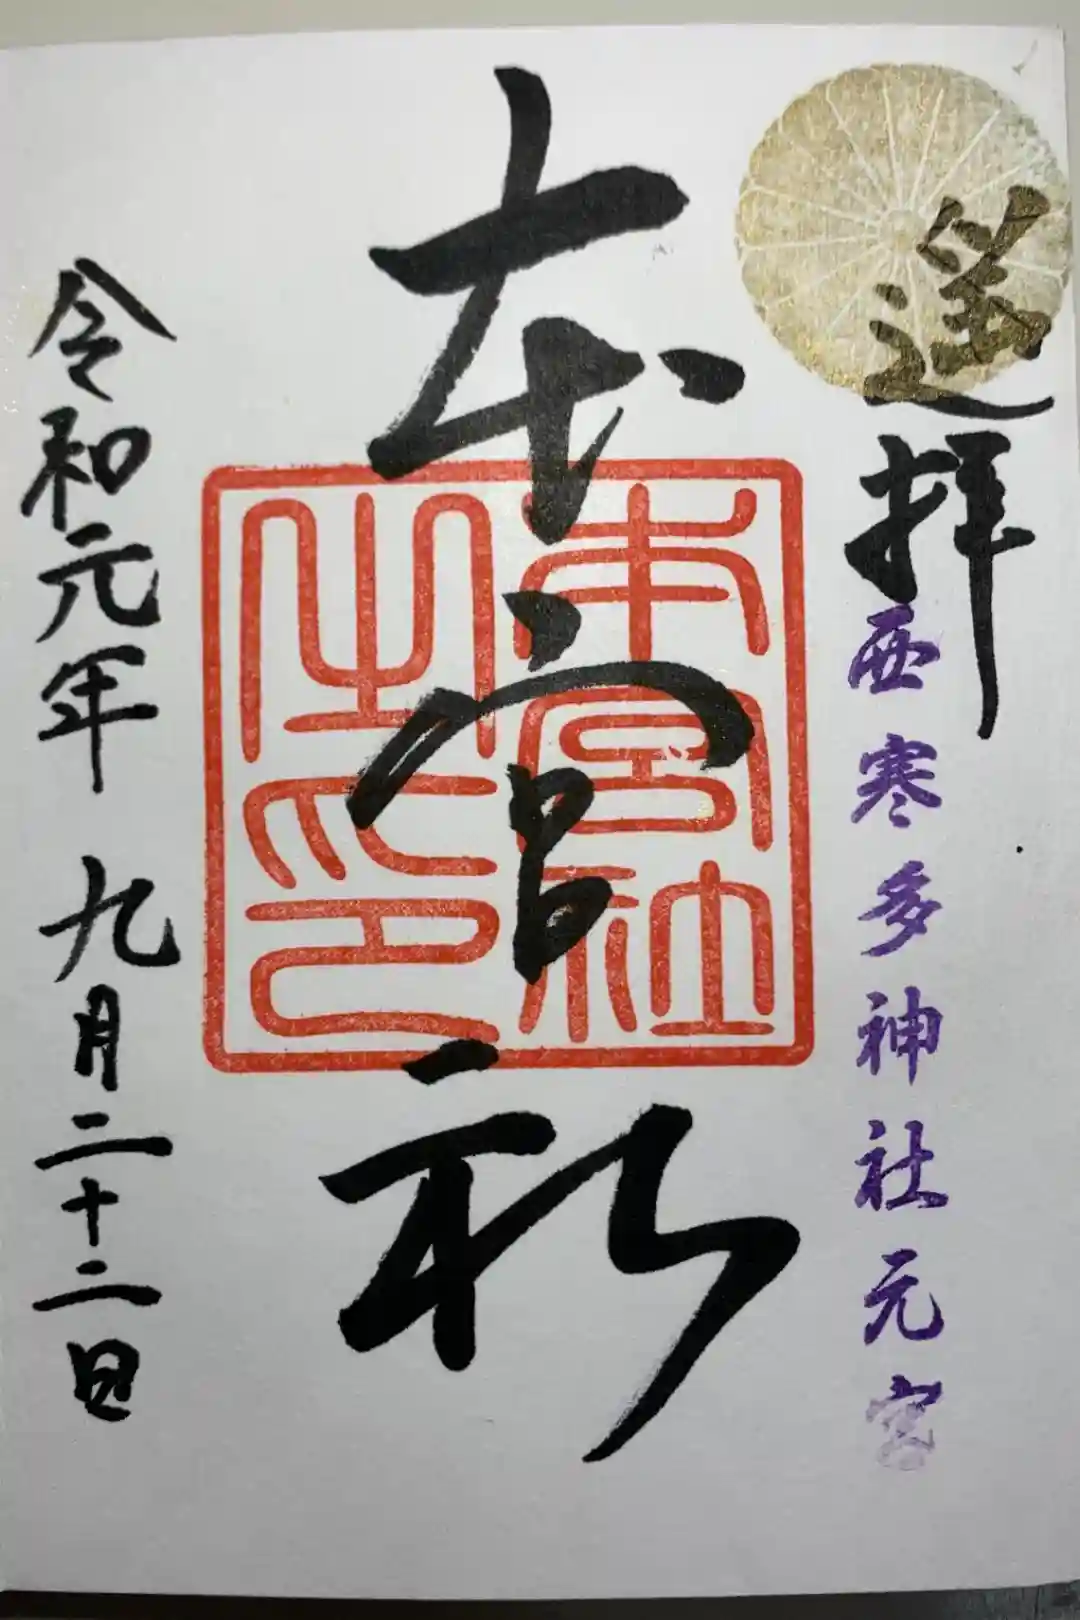 遥拝
西寒多神社元宮
本宮社
本宮社
之印
令和元年 九月二十二日